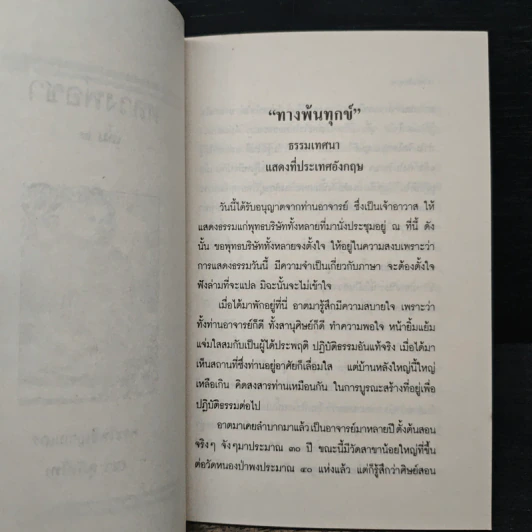 “ทางพ้นทุกข์”
ธรรมเทศนา
แสดงที่ประเทศอังกฤษ
วันนี้ได้รับอนุญาตจากท่านอาจารย์ ซึ่งเป็นเจ้าอาวาส ให้
แสดงธรรมแก่พุทธบริษัททั้งหลายที่มานั่งประชุมอยู่ ณ ที่นี้ ดัง
นั้น ขอพุทธบริษัททั้งหลายจงตั้งใจ ให้อยู่ในความสงบเพราะว่า
การแสดงธรรมวันนี้ มีความจำเป็นเกี่ยวกับภาษา จะต้องตั้งใจ
ฟังล่ามที่จะแปล มิฉะนั้นจะไม่เข้าใจ
เมื่อได้มาพักอยู่ที่นี่ อาตมารู้สึกมีความสบายใจ เพราะว่า
ทั้งท่านอาจารย์ก็ดี ทั้งสานุศิษย์ก็ดี ทำความพอใจ หน้ายิ้มแย้ม
แจ่มใสสมกับเป็นผู้ได้ประพฤติ ปฏิบัติธรรมอันแท้จริง เมื่อได้มา
เห็นสถานที่ซึ่งท่านอยู่อาศัยก็เลื่อมใส แต่บ้านหลังใหญ่นี้ใหญ่
เหลือเกิน คิดสงสารท่านเหมือนกัน ในการบูรณะสร้างที่อยู่เพื่อ
ปฏิบัติธรรมต่อไป
อาตมาเคยลำบากมาแล้วเป็นอาจารย์มาหลายปี ตั้งต้นสอน
จริงๆ จังๆมาประมาณ ๓๐ ปี ขณะนี้มีวัดสาขาน้อยใหญ่ที่ขึ้น
ต่อวัดหนองป่าพงประมาณ ๔๐ แห่งแล้ว แต่ก็รู้สึกว่าศิษย์สอน